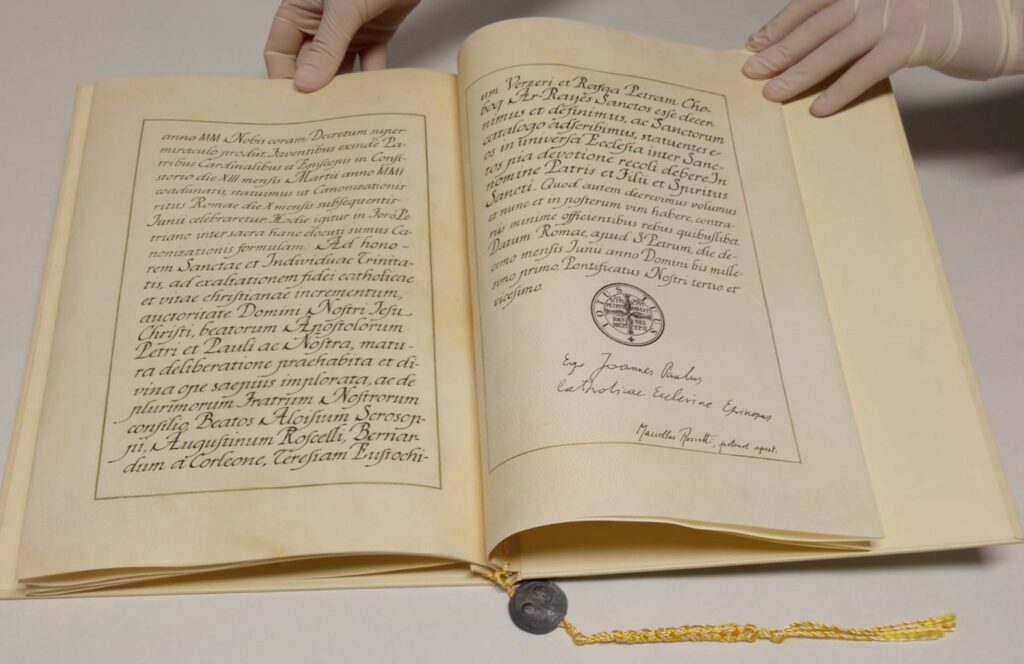 anno MM Nobis coram Decretum super
miraculo prodiit. Faventibus exinde Pa-
tribus Cardinalibus et Episcopis in Consi-
storio die XIII mensis Martii anno MMI
coadunatis, statuimus ut Canonizationis
ritus Romae die X mensis subsequentis
Iunii celebraretur. Hodie igitur in Foro Pe-
triano inter sacra hanc elocuti sumus Ca-
nonizationis formulam: Ad hono-
rem Sanctae et Individuae Trinita-
tis, ad exaltationem fidei catholicae
et vitae christianae incrementum,
auctoritate Domini Nostri Iesu
Christi, beatorum Apostolorum
Petri et Pauli ac Nostra, matu-
ra deliberatione praehabita et di-
vina ope saepius implorata, ac de
plurimorum Fratrum Nostrorum
consilio, Beatos Aloisium Scrosop-
pi, Augustinum Roscelli, Bernar-
dum a Corleone, Teresiam Eustochi-
um Verzeri et Rafqa Petram Cho-
boq Ar-Rayès Sanctos esse decer-
nimus et definimus, ac Sanctorum
catalogo adscribimus, statuentes e-
os in universa Ecclesia inter Sanc-
tos pia devotione recoli debere. In
nomine Patris et Filii et Spiritus
Sancti. Quod autem decrevimus volumus
et nunc et in posterum vim habere, contra-
riis minime officientibus rebus quibuslibet.
Datum Romae, apud S. Petrum, die de-
cimo mensis Iunii anno Domini bis mille-
simo primo, Pontificatus Nostri tertio et
vicesimo.
TOTUS TUUS
Ego Joannes Paulus
Catholicae Ecclesiae Episcopus
Marcellus Rossetti, protonot. apost.